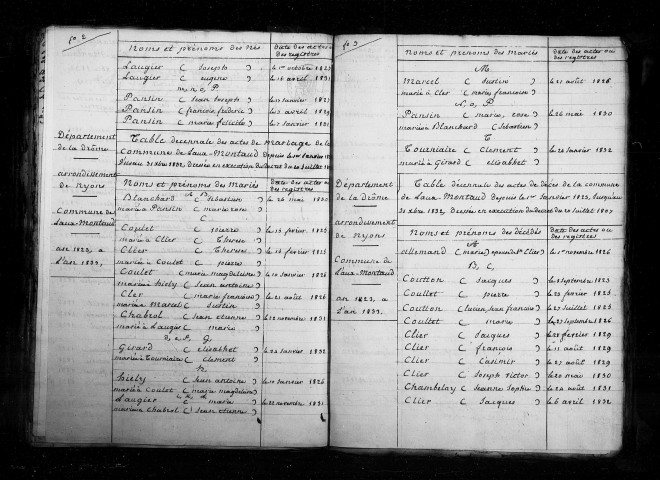 fo 2
Noms et prénoms des Nés
Date des actes ou des registres
Laugier ( Joseph ) le 1er octobre 1827
Laugier ( eugene ) le 10 avril 1831
m, n, o, P
Pansin ( jean joseph ) le 13 janvier 1827
Pansin ( françois fréderic ) le 2 avril 1829
Pansin ( marie félicité ) le 7 janvier 1831
Département de la Drôme
arrondissement de Nyons
Commune de Laux-Montaud
an 1823, a l'an 1833,
Table décennale des actes de mariage de la
Commune de Laux-Montaud depuis le 1er janvier 1823
jusqu'au 31 xbre 1832, Dressée en exécution du Décret du 20 juillet 1807
Noms et prénoms des Mariés
Date des actes ou des registres
B
Blanchard ( Sébastien ) le 26 mai 1830
marié a Pansin ( marie rose )
C
Coulet ( pierre ) le 18 fevrier 1825
marié a Clier ( Therese )
Clier ( Therese ) le 18 fevrier 1825
mariée a Coulet ( pierre )
Coulet ( marie magdeleine ) le 10 janvier 1826
mariée a hiely ( jean antoine )
Cler ( marie françoise ) le 21 août 1826
mariée a Marcel ( Justin )
Chabrol ( jean etienne ) le 22 novembre 1831
marié a Laugier ( marie )
d, e, F, G
Girard ( elisabhet ) le 24 janvier 1832
mariée a Tourniaire ( clement )
h
hiely ( jean antoine ) le 10 janvier 1826
marié a Coulet ( marie magdeleine )
Laugier ( marie ) le 22 novembre 1831
mariée a Chabrol ( jean etienne )
fo 3
Noms et prénoms des Mariés
Date des actes ou des registres
M
Marcel ( Justin ) le 21 août 1826
marié a Clier ( marie françoise )
N, o, P
Pansin ( marie, rose ) le 26 mai 1830
mariée a Blanchard ( Sébastien )
T
Tourniaire ( Clement ) le 24 janvier 1832
marié a Girard ( elisabhet )
Département de la Drôme
arrondissement de Nyons
Commune de Laux-Montaud
an 1823, a l'an 1833.
Table décennale des actes de décès de la commune
de Laux-Montaud depuis le 1er janvier 1823, jusqu'au
31 xbre 1832, Dressée en exécution du Décret du 20 juillet 1807
Noms et prénoms des décédés
Date des actes ou des registres
A
allemand ( marie ) epouse de Clier ( le 1er novembre 1826
B, C,
Coutton ( Jacques ) le 8 septembre 1823
Coullet ( pierre ) le 23 fevrier 1825
Coutton ( jean françois ) le 27 juillet 1825
Coultet ( marie ) le 27 septembre 1826
Clier ( Jacques ) le 28 fevrier 1829
Clier ( françois ) le 11 août 1829
Clier ( Casimir ) le 27 août 1829
Clier ( Joseph victor ) le 20 mai 1830
Chambelay ( Jeanne Sophie ) le 24 août 1831
Clier ( Jacques ) le 6 avril 1832